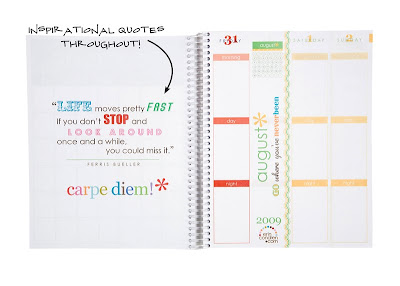 INSPIRATIONAL QUOTES
THROUGHOUT!
"LIFE moves pretty FAST
If you don't STOP and
LOOK AROUND
once and a while,
you could miss it."
FERRIS BUELLER
carpe diem!*
FRIDAY 31
august
SATURDAY 1
SUNDAY 2
morning
day!
night
august*
GO where you've never been
2009
erin
condren
.com